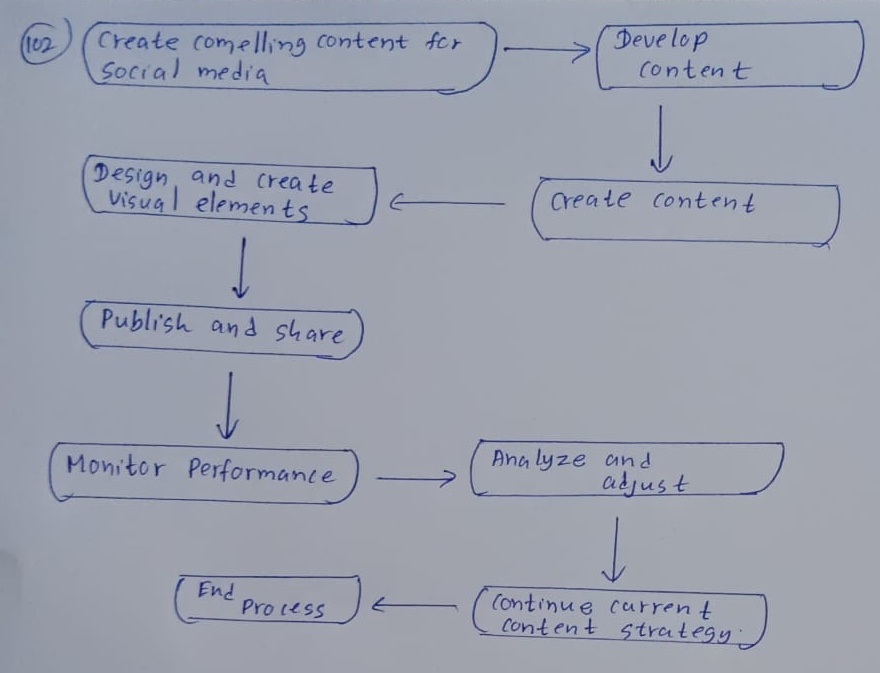 102
Create comelling content for
social media
Develop
content
Create content
Design and create
visual elements
Publish and share
Monitor Performance
Analyze and
adjust
Continue current
content strategy.
End
Process